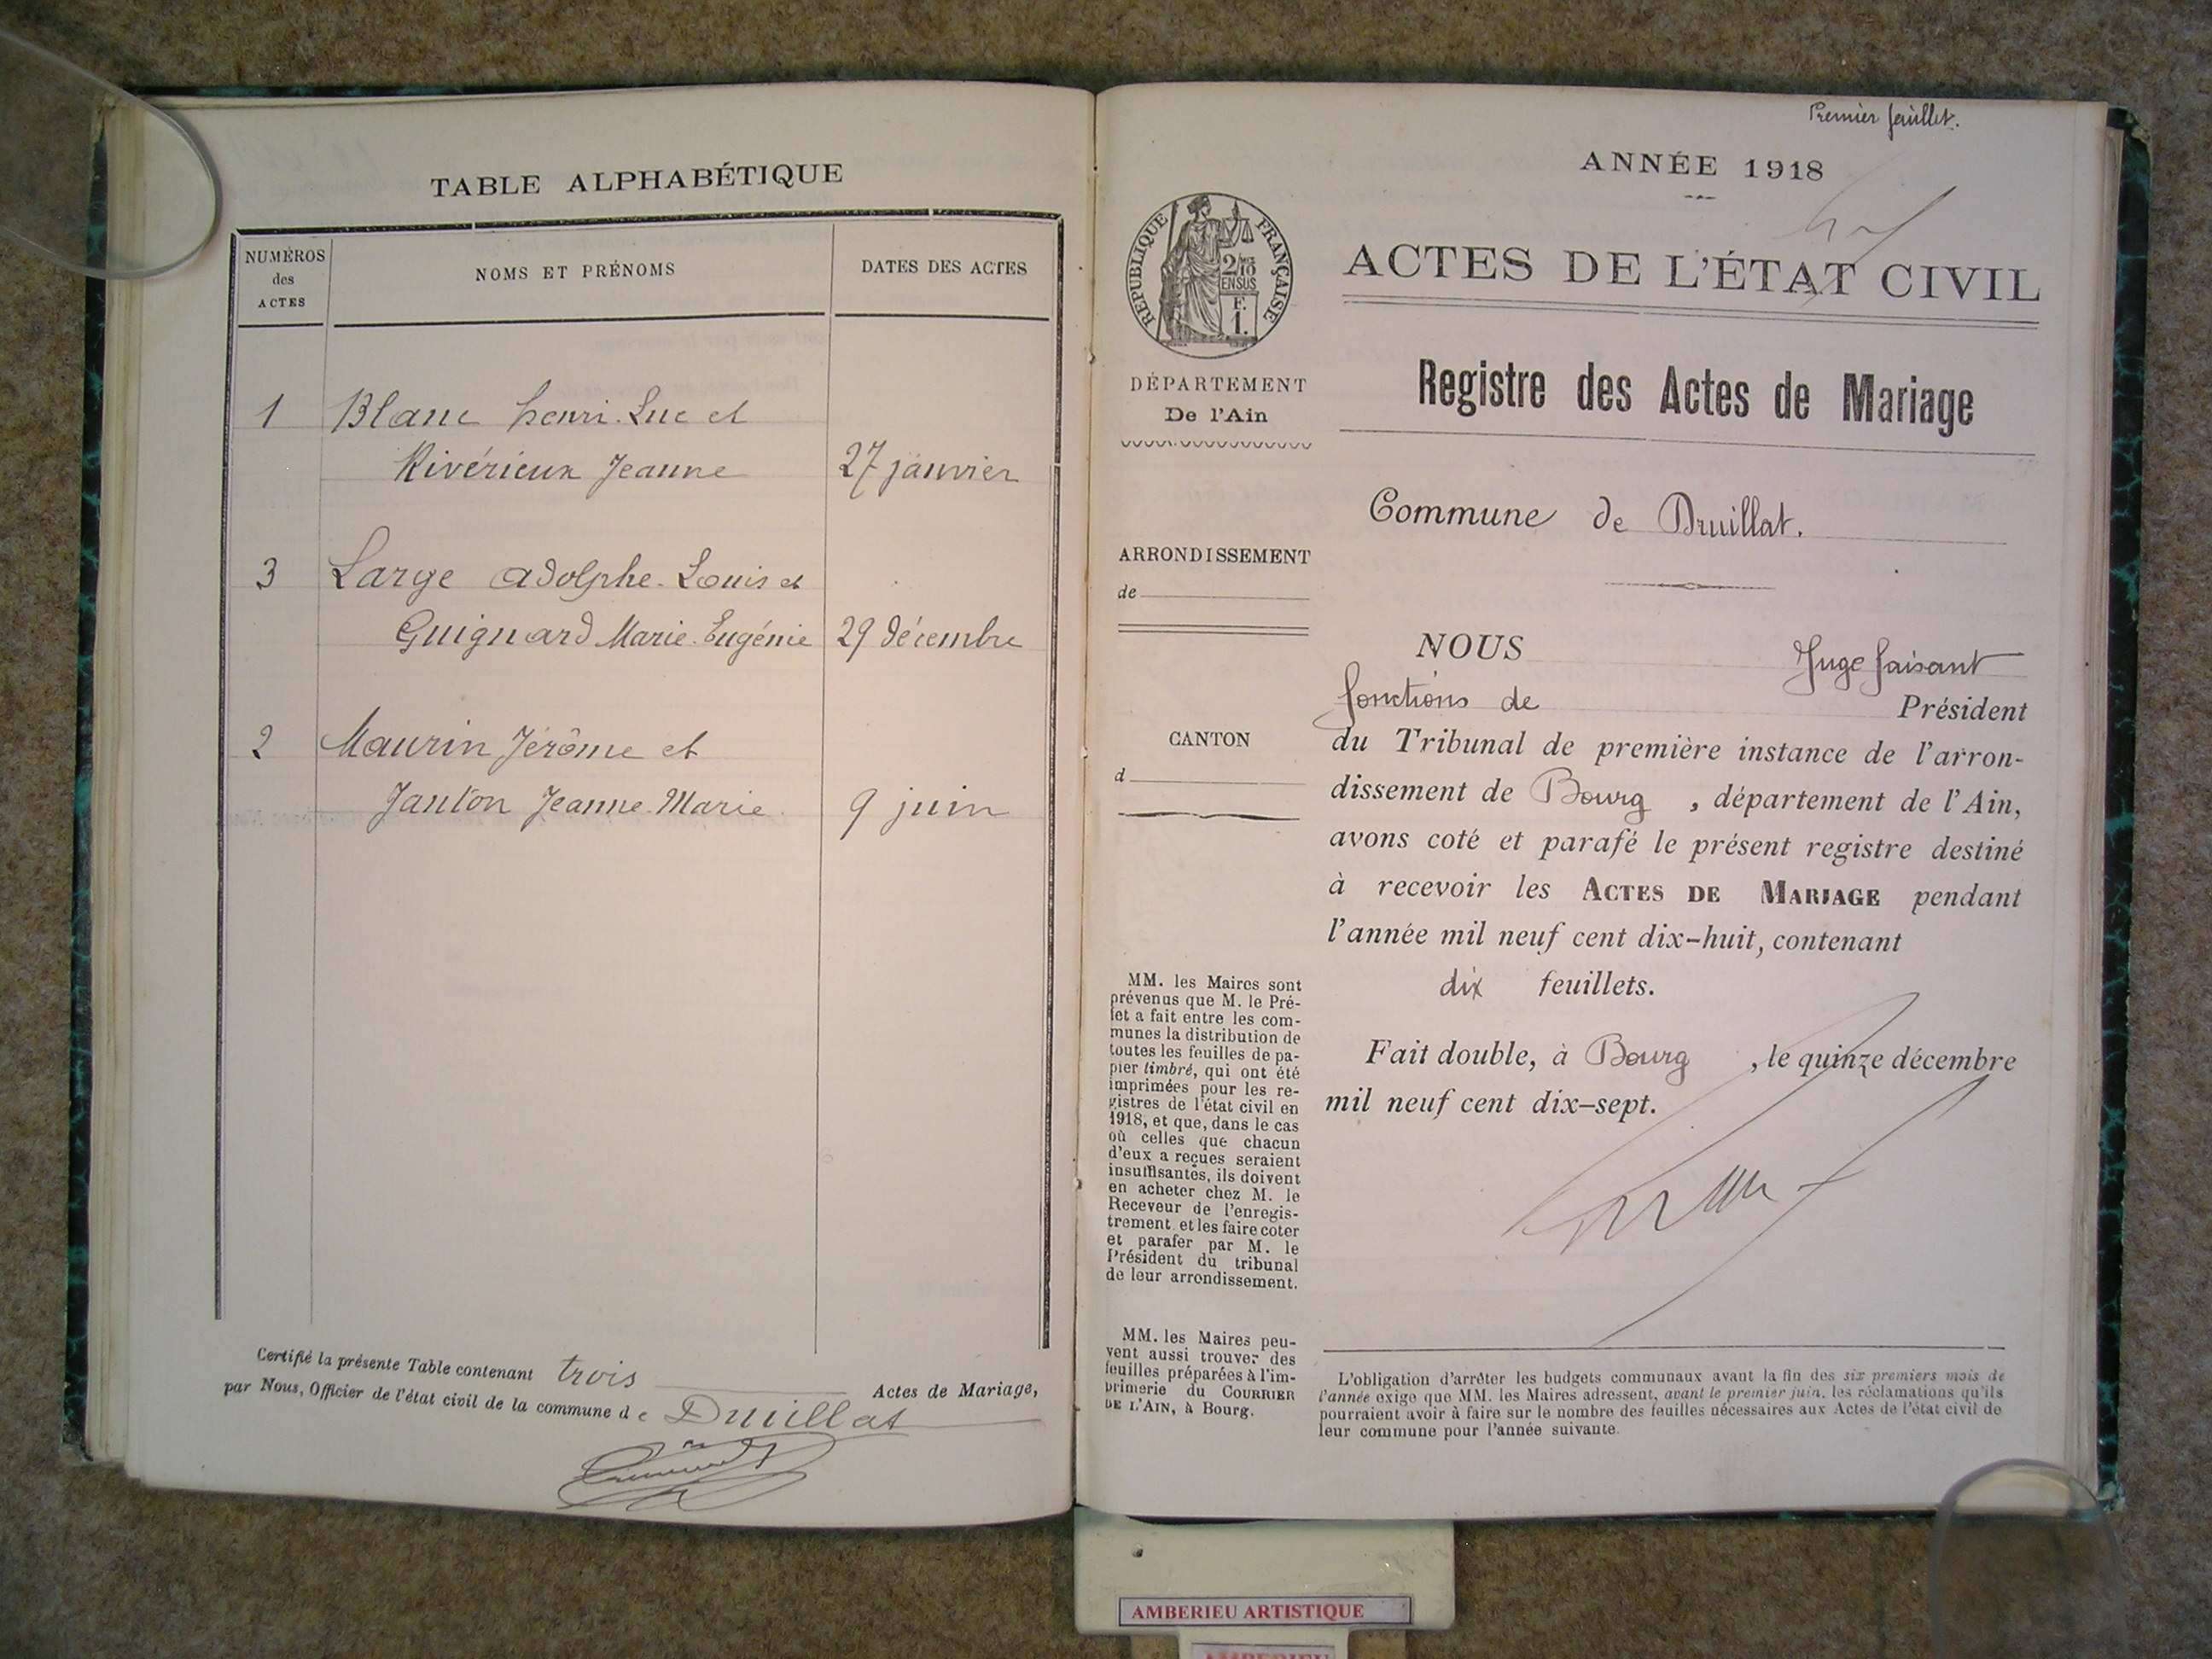 TABLE ALPHABÉTIQUE
NUMÉROS
des
ACTES
NOMS ET PRÉNOMS
DATES DES ACTES
1 Blanc henri-Luc et
Rivérieux Jeanne 27 janvier
3 Large adolphe-Louis et
Guignard Marie-Eugénie 29 décembre
2 Maurin Jérôme et
Janton Jeanne-Marie 9 juin
Certifié la présente Table contenant trois Actes de Mariage,
par Nous, Officier de l'état civil de la commune de Druillat
Premier feuillet.
ANNÉE 1918
RÉPUBLIQUE FRANÇAISE
2/10
EN SUS
F.
1.
ACTES DE L'ÉTAT CIVIL
DÉPARTEMENT
De l'Ain
Registre des Actes de Mariage
Commune de Druillat.
ARRONDISSEMENT
de
CANTON
d
NOUS Juge faisant
fonctions de Président
du Tribunal de première instance de l'arron-
dissement de Bourg, département de l'Ain,
avons coté et parafé le présent registre destiné
à recevoir les ACTES DE MARIAGE pendant
l'année mil neuf cent dix-huit, contenant
dix feuillets.
Fait double, à Bourg, le quinze décembre
mil neuf cent dix-sept.
MM. les Maires sont
prévenus que M. le Pré-
fet a fait entre les com-
munes la distribution de
toutes les feuilles de pa-
pier timbré, qui ont été
imprimées pour les re-
gistres de l'état civil en
1918, et que, dans le cas
où celles que chacun
d'eux a reçues seraient
insuffisantes, ils doivent
en acheter chez M. le
Receveur de l'enregis-
trement et les faire coter
et parafer par M. le
Président du tribunal
de leur arrondissement.
MM. les Maires peu-
vent aussi trouver des
feuilles préparées à l'im-
primerie du COURRIER
DE L'AIN, à Bourg.
L'obligation d'arrêter les budgets communaux avant la fin des six premiers mois de
l'année exige que MM. les Maires adressent, avant le premier juin, les réclamations qu'ils
pourraient avoir à faire sur le nombre des feuilles nécessaires aux Actes de l'état civil de
leur commune pour l'année suivante.
AMBERIEU ARTISTIQUE
AMBERIEU